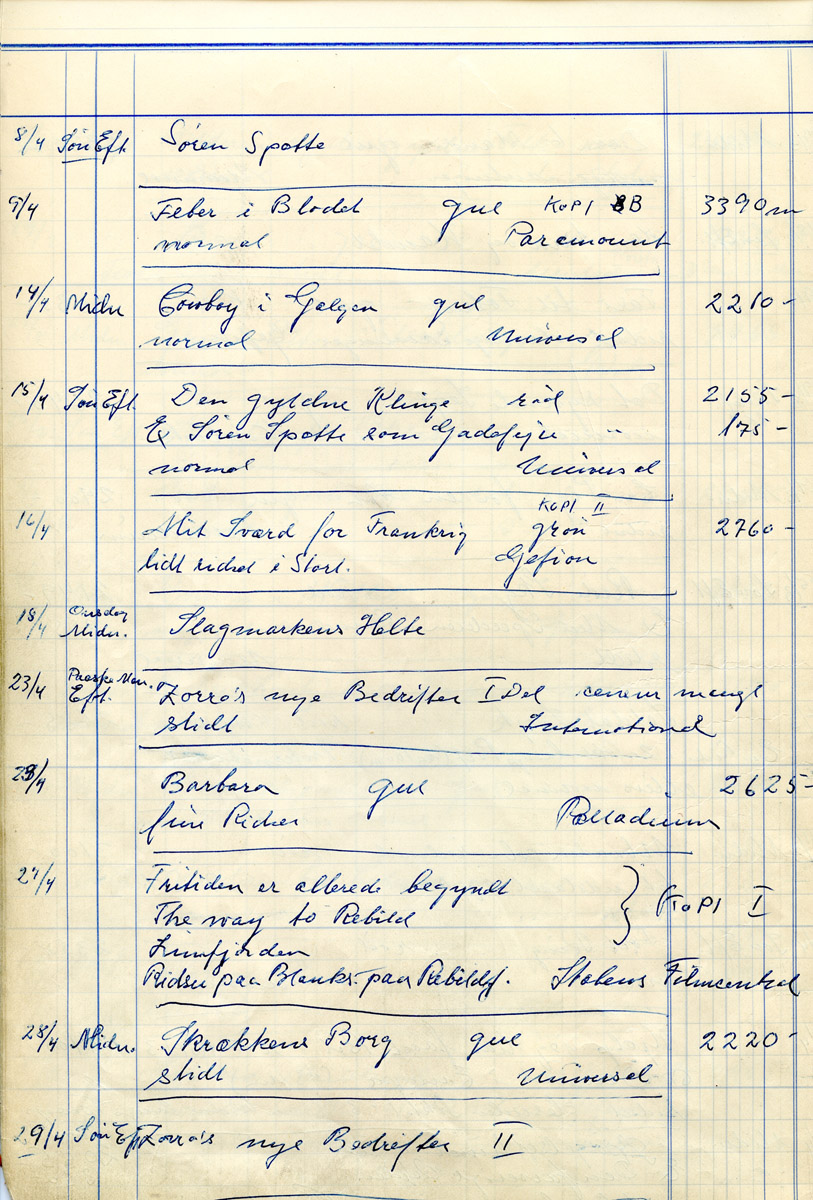 8/4 Søn Eft. Søren Spætte
9/4 Feber i Blodet gul KOPI B 3390 m
normal Paramount
14/4 Midn Cowboy i Galgen gul 2210 -
normal Universal
15/4 Søn Eft. Den gyldne Klinge rød 2155 -
Ex Søren Spætte som Gadefejer " 175 -
normal Universal
KOPI II
16/4 Mit Sværd for Frankrig grøn 2760 -
lidt ridset i Start. Gefion
18/4 Onsdag Midn. Slagmarkens Helte
23/4 Paaske Man. Eft. Zorro's nye Bedrifter I Del censur mangl
slidt International
23/4 Barbara gul 2625 -
fine Ridser Palladium
27/4 Fritiden er allerede begyndt
The way to Rebild } KOPI I
Limfjorden
Ridser paa Blanks. paa Rebildf. Statens Filmcentral
28/4 Midn. Skrækkens Borg gul 2220 -
slidt Universal
29/4 Søn Eft Zorro's nye Bedrifter II